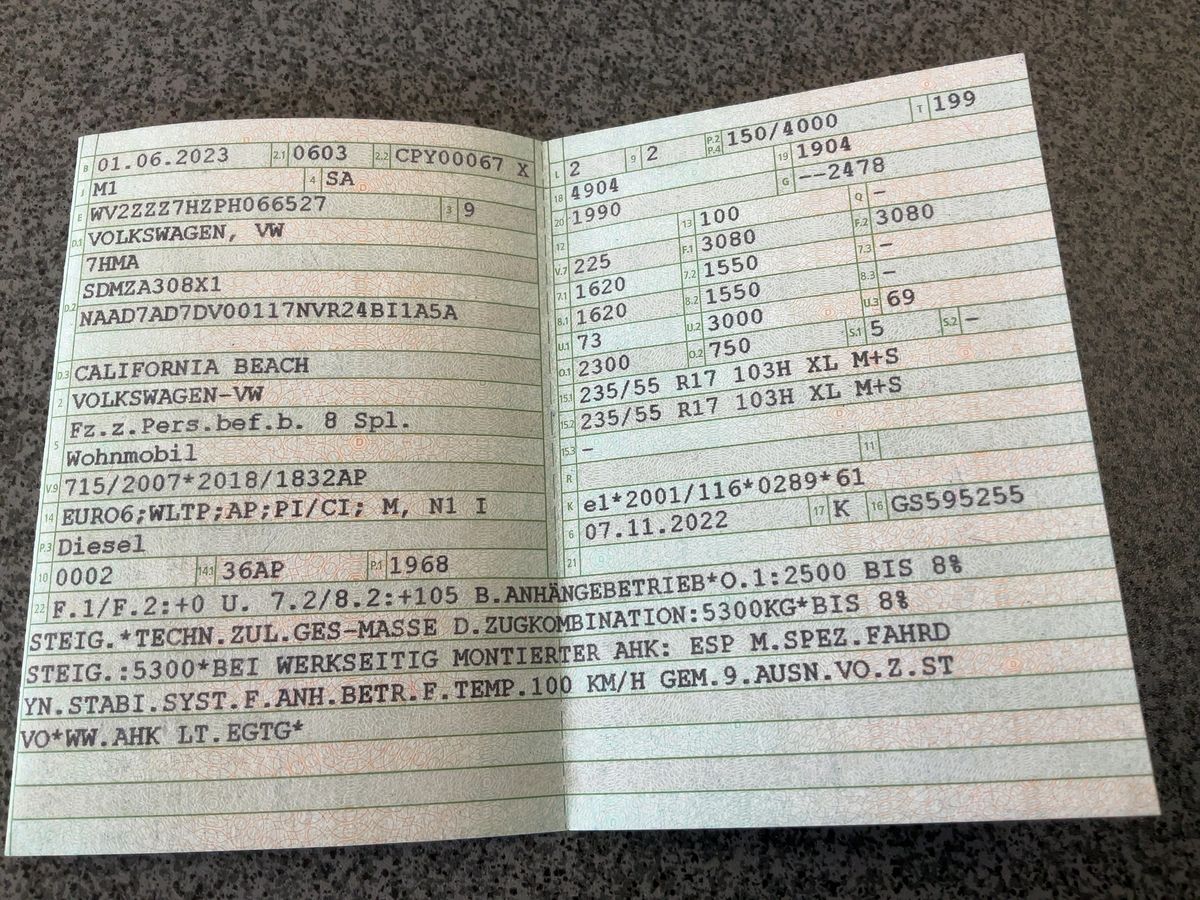 B 01.06.2023 2.1 0603 2.2 CPY00067 X
J M1 4 SA
E WV2ZZZ7HZPH066527 3 9
D.1 VOLKSWAGEN, VW
7HMA
D.2 SDMZA308X1
NAAD7AD7DV00117NVR24BI1A5A
D.3 CALIFORNIA BEACH
2 VOLKSWAGEN-VW
5 Fz.z.Pers.bef.b. 8 Spl.
Wohnmobil
V.9 715/2007*2018/1832AP
14 EURO6;WLTP;AP;PI/CI; M, N1 I
P.3 Diesel
10 0002 14.1 36AP P.1 1968
L 2 9 2 P.2 P.4 150/4000 T 199
18 4904 19 1904
20 1990 G --2478
12 13 100 Q -
V.7 225 F.1 3080 F.2 3080
7.1 1620 7.2 1550 7.3 -
8.1 1620 8.2 1550 8.3 -
U.1 73 U.2 3000 U.3 69
O.1 2300 O.2 750 S.1 5 S.2 -
15.1 235/55 R17 103H XL M+S
15.2 235/55 R17 103H XL M+S
15.3 -
R 11
K e1*2001/116*0289*61
6 07.11.2022 17 K 16 GS595255
21
22 F.1/F.2:+0 U. 7.2/8.2:+105 B.ANHÄNGEBETRIEB*O.1:2500 BIS 8%
STEIG.*TECHN.ZUL.GES-MASSE D.ZUGKOMBINATION:5300KG*BIS 8%
STEIG.:5300*BEI WERKSEITIG MONTIERTER AHK: ESP M.SPEZ.FAHRD
YN.STABI.SYST.F.ANH.BETR.F.TEMP.100 KM/H GEM.9.AUSN.VO.Z.ST
VO*WW.AHK LT.EGTG*